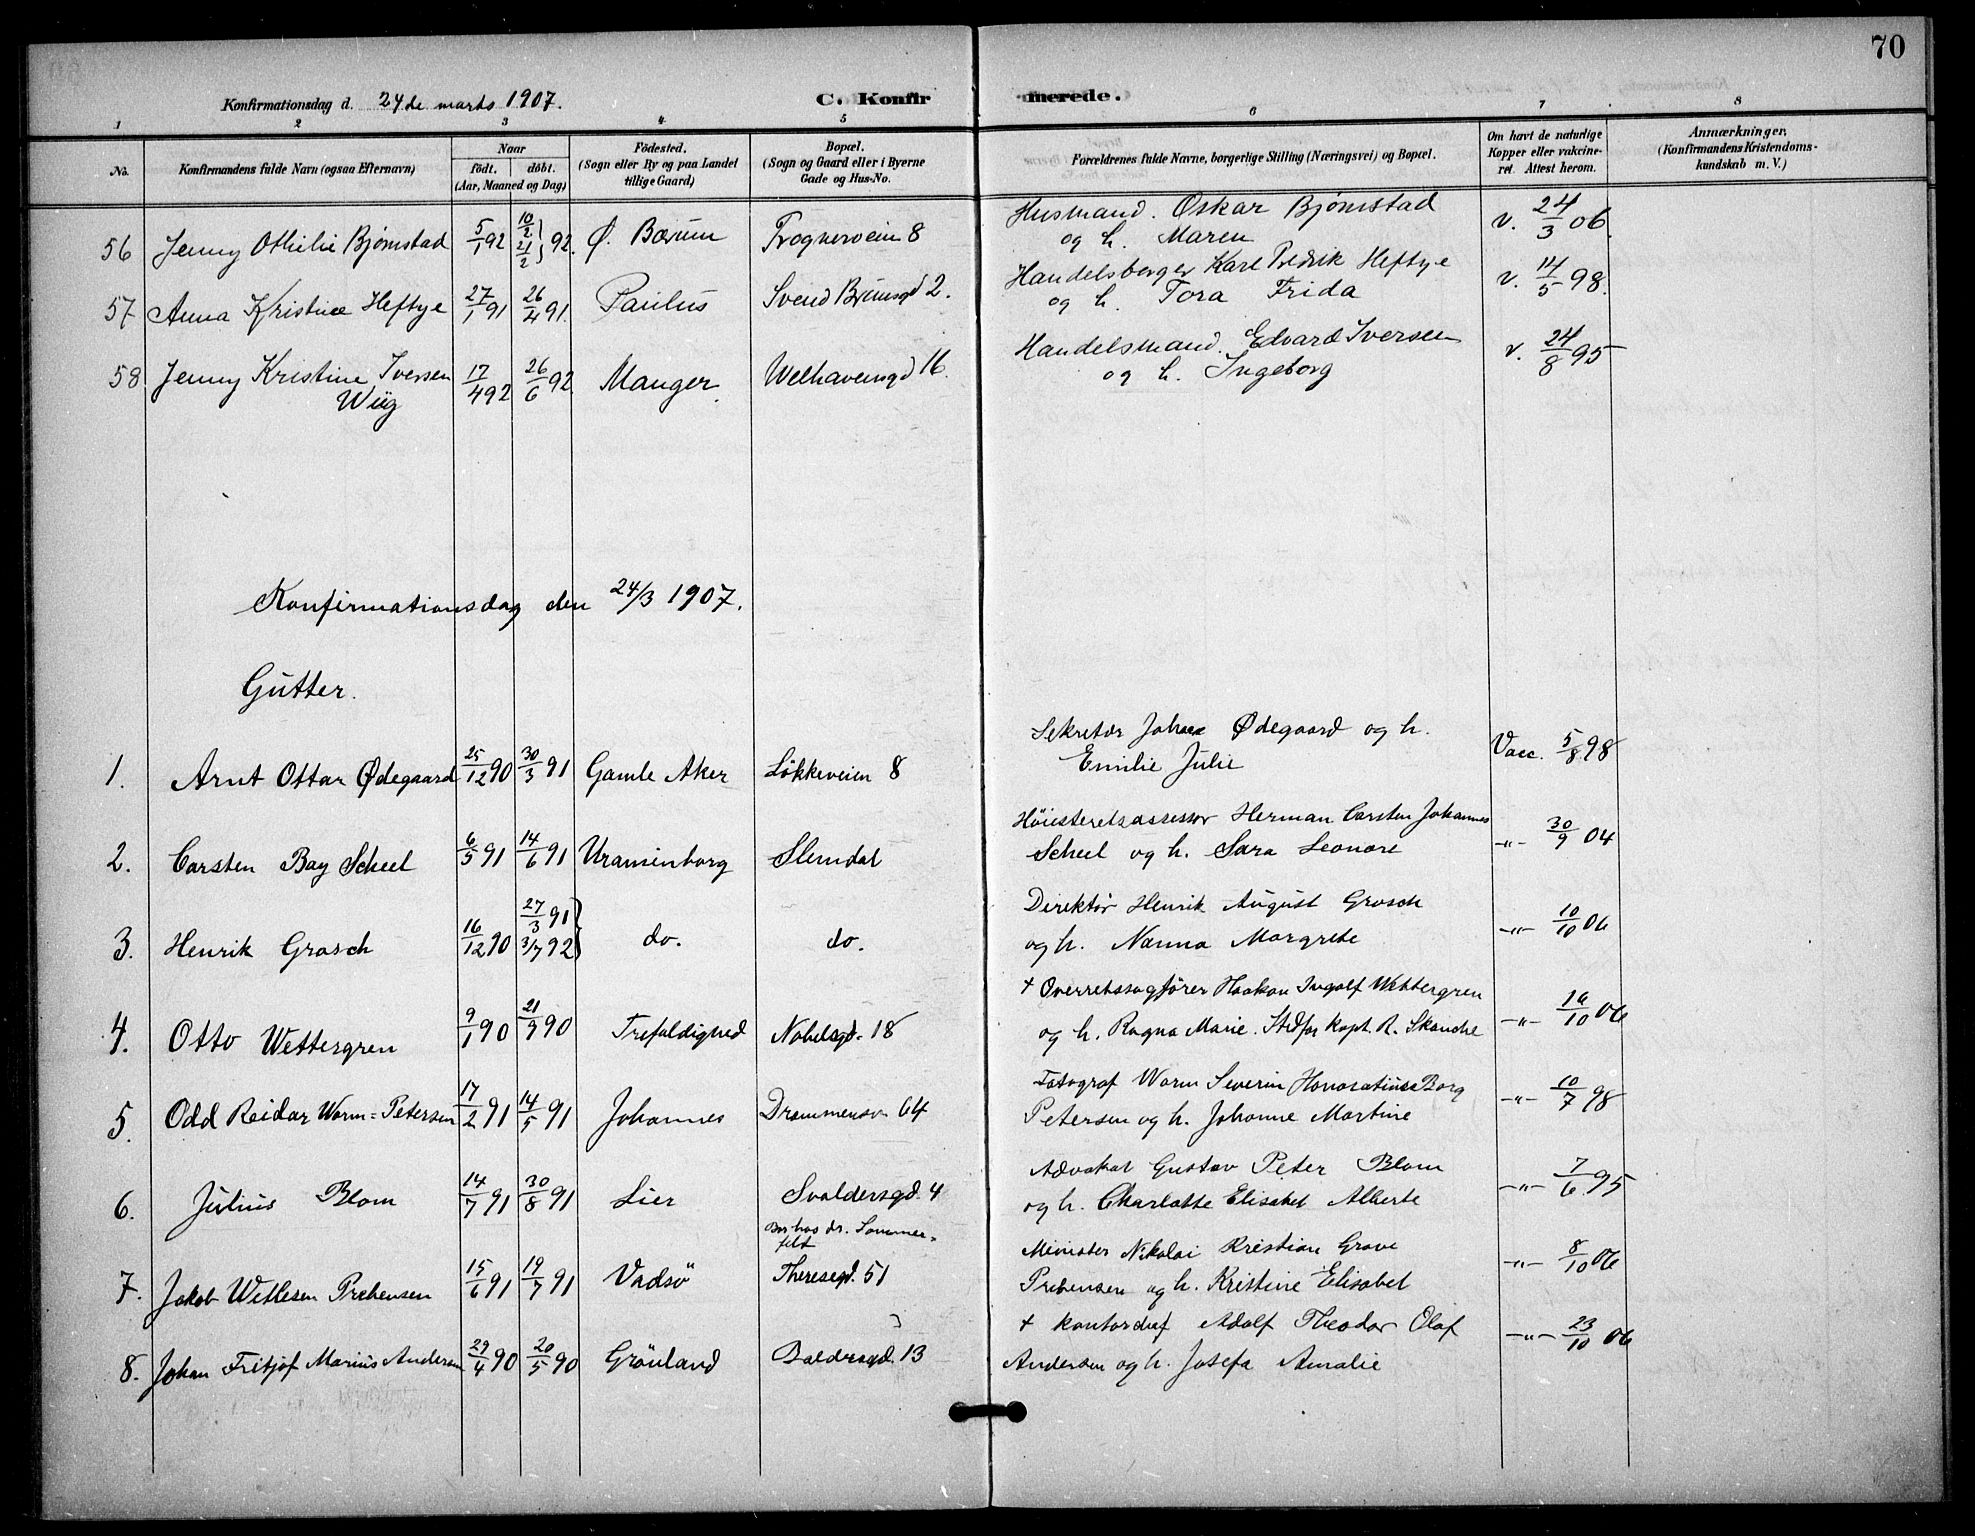 70
Konfirmationsdag d. 24de marts 1907.
C. Konfirmerede.
1 2 3 4 5 6 7 8
No. Konfirmandens fulde Navn (ogsaa Efternavn) Naar födt. döbt. (Aar, Maaned og Dag) Födested. (Sogn eller By og paa Landet tillige Gaard) Bopæl. (Sogn og Gaard eller i Byerne Gade og Hus-No. Forældrenes fulde Navne, borgerlige Stilling (Næringsvei) og Bopæl. Om havt de naturlige Kopper eller vakcineret. Attest herom. Anmærkninger. (Konfirmandens Kristendomskundskab m. V.)
56 Jenny Othilie Bjørnstad 5/1 92 10/2 21/2 92. Ø. Bærum Frognervein 8 Husmand. Oskar Bjørnstad v. 24/3 06.
og h. Maren
57 Anna Kristine Heftye 27/1 91 26/4 91. Paulus Svend Brunsgd 2. Handelsborger Karl Fredrik Heftye v. 14/5 98.
og h. Tora Frida
58 Jenny Kristine Iversen 17/4 92 26/6 92 Manger. Welhavensgd 16. Handelsmand. Edvard Iversen v. 24/8 95
Wiig og h. Ingeborg
Konfirmationsdag den 24/3 1907.
Gutter.
1. Arnt Ottar Ødegaard 25/12 90 30/3 91 Gamle Aker Lökkeveien 8 Sekretær Johan Ødegaard og h. Vacc. 5/8 98
Emilie Julie
2. Carsten Bay Scheel 6/5 91 14/6 91 Uranienborg Slemdal Höiesteretsassessor Herman Carsten Johannes -"- 30/9 04
Scheel og h. Sara Leonore
3. Henrik Grosch 16/12 90 27/3 91 3/7 92 do. do. Direktör Henrik August Grosch -"- 10/10 06
og h. Nanna Margrete
4. Otto Wettergren 9/1 90 21/9 90 Trefoldighed Nobelsgd. 18 + Overretssagförer Haakon Ingolf Wettergren -"- 16/10 06
og h. Ragna Marie. Stedfar Kapt. R. Skanche
5. Odd Reidar Worm=Petersen 17/2 91 14/5 91 Johannes Drammensv 64 Fotograf Worm Severin Honoratius Borg -"- 10/7 98
Petersen og h. Johanne Martine
6. Julius Blom 14/7 91 30/8 91 Lier Svoldersgd. 4 Advokat Gustav Peter Blom -"- 7/6 95
og h. Charlotte Elisabet Alberte
Bor hos dr. Sommer=
felt
7. Jakob Wetlesen Prebensen 15/6 91 19/7 91 Vadsö Theresegd. 51 Minister Nikolai Kristian Grove -"- 8/10 06
Prebensen og h. Kristine Elisabet
8. Johan Fritjof Marius Andersen 29/4 90 20/5 90 Grönland Baldersgd. 13 + Kontorchef Adolf Theodor Olaf -"- 23/10 06
Andersen og h. Josefa Amalie